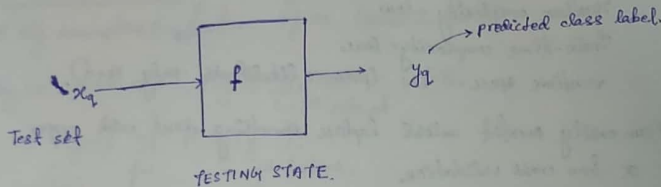 predicted class label.
x_q
f
y_q
Test set
TESTING STATE.